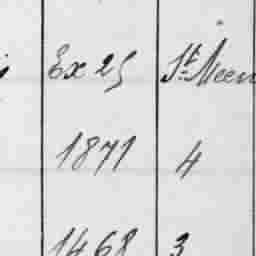 Ex 25 St. Meen
1871 4
1468 3